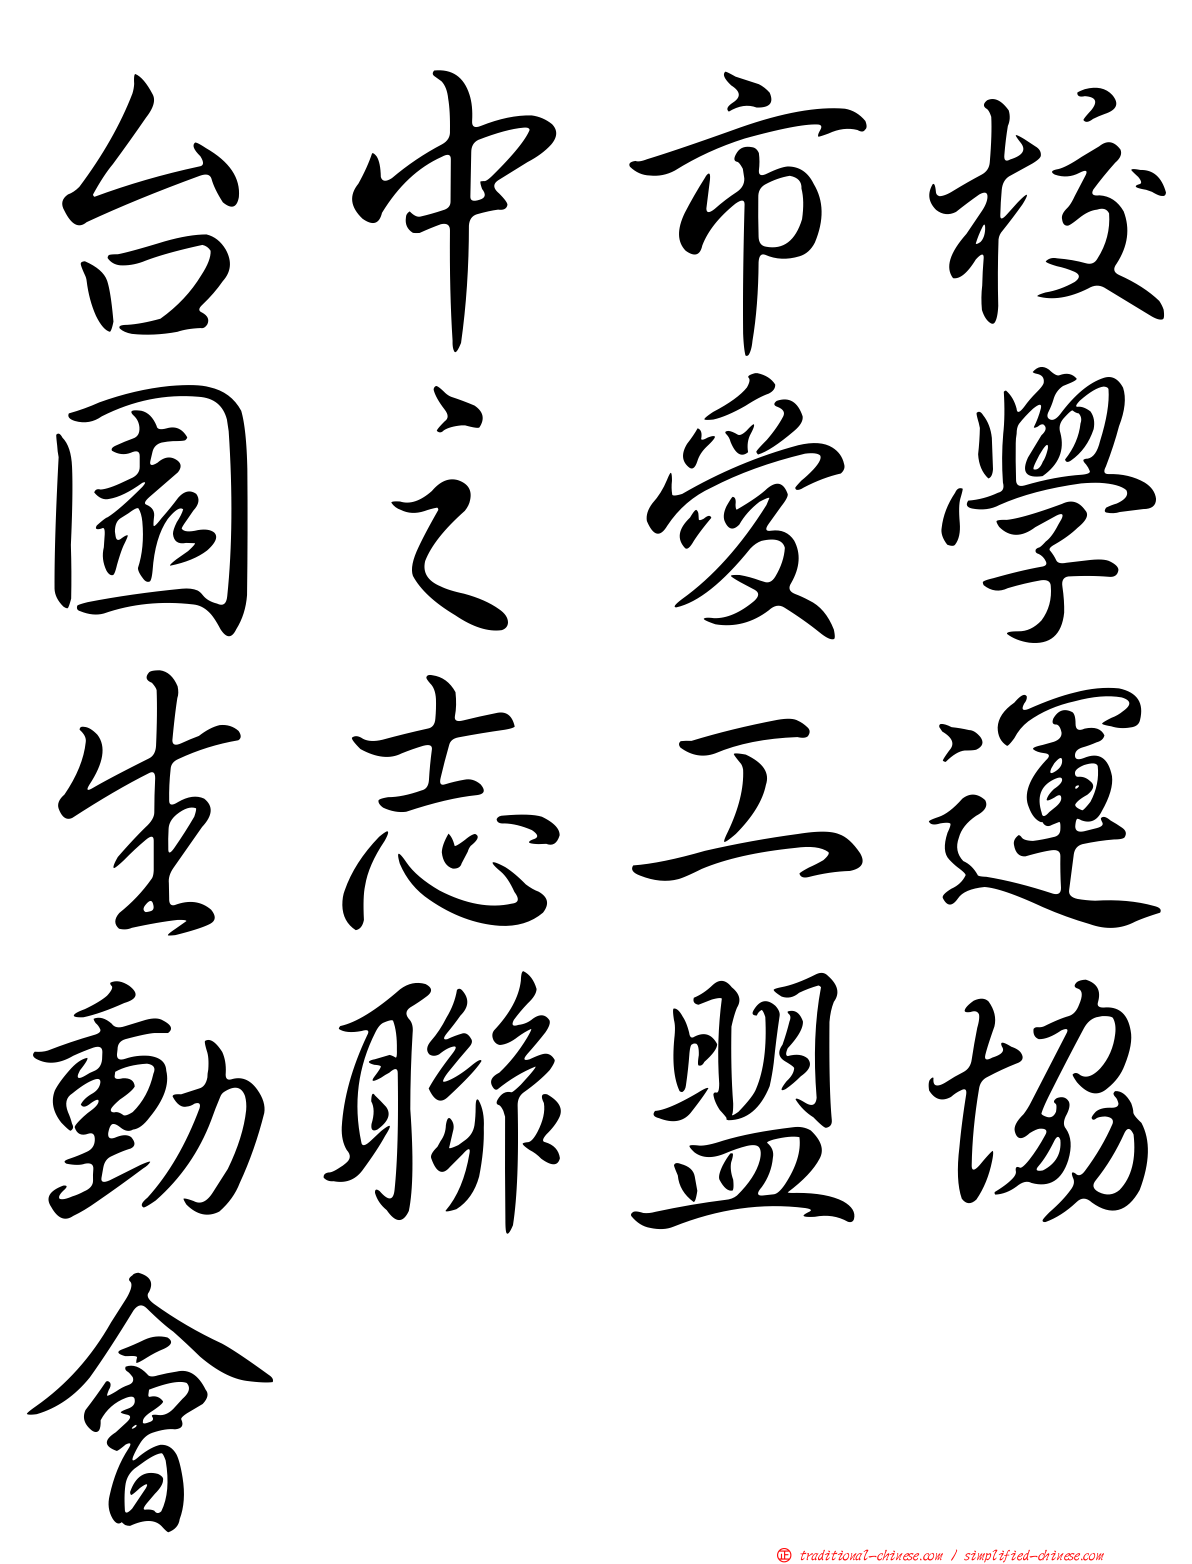 台中市校
園之愛學
生志工運
動聯盟協
會
㊣ traditional-chinese.com / simplified-chinese.com